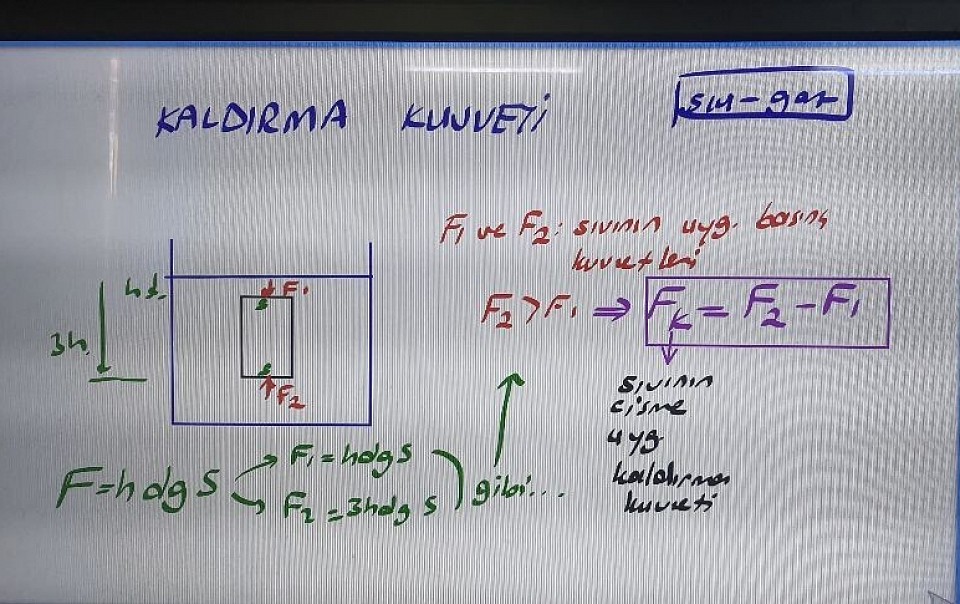 KALDIRMA KUVVETİ
sıvı-gaz
F₁ ve F₂: sıvının uyg. basınç
kuvvetleri
F₂>F₁ ⇒ Fₖ = F₂-F₁
sıvının
cisme
uyg
kaldırma
kuvveti
h
3h
F₁
S
S
F₂
F=hdgS
F₁=hdgS
F₂=3hdgS
gibi...